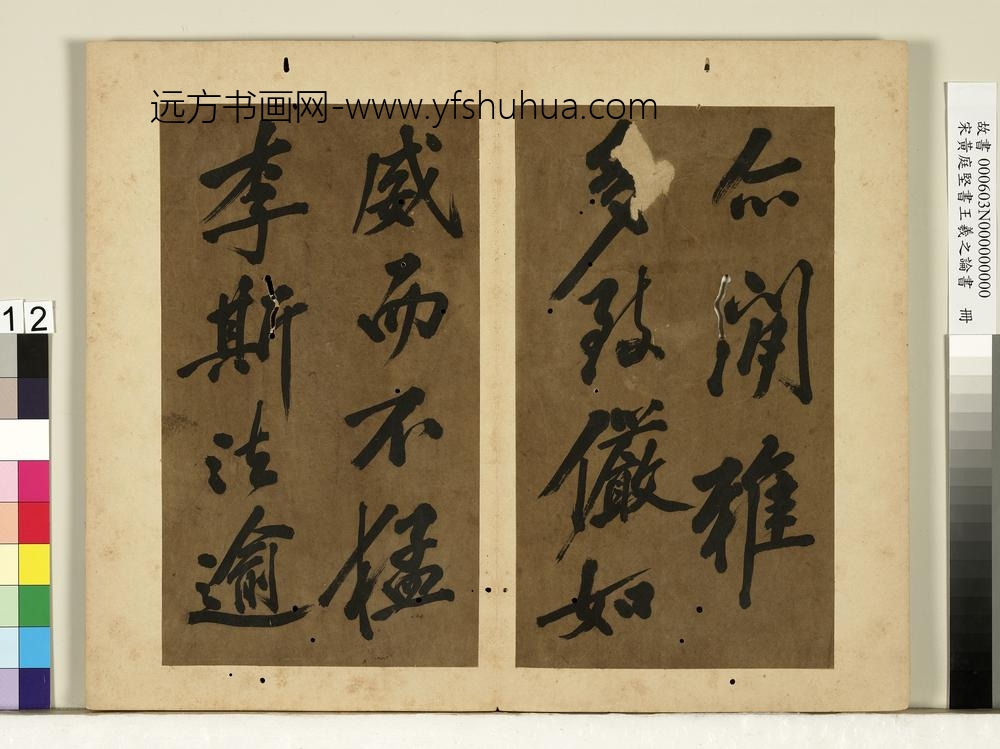 远方书画网-www.yfshuhua.com
心閑雅
多致儼如
威而不猛
李斯法逾
故書 000603N000000000
宋黃庭堅書王羲之論書 冊
12